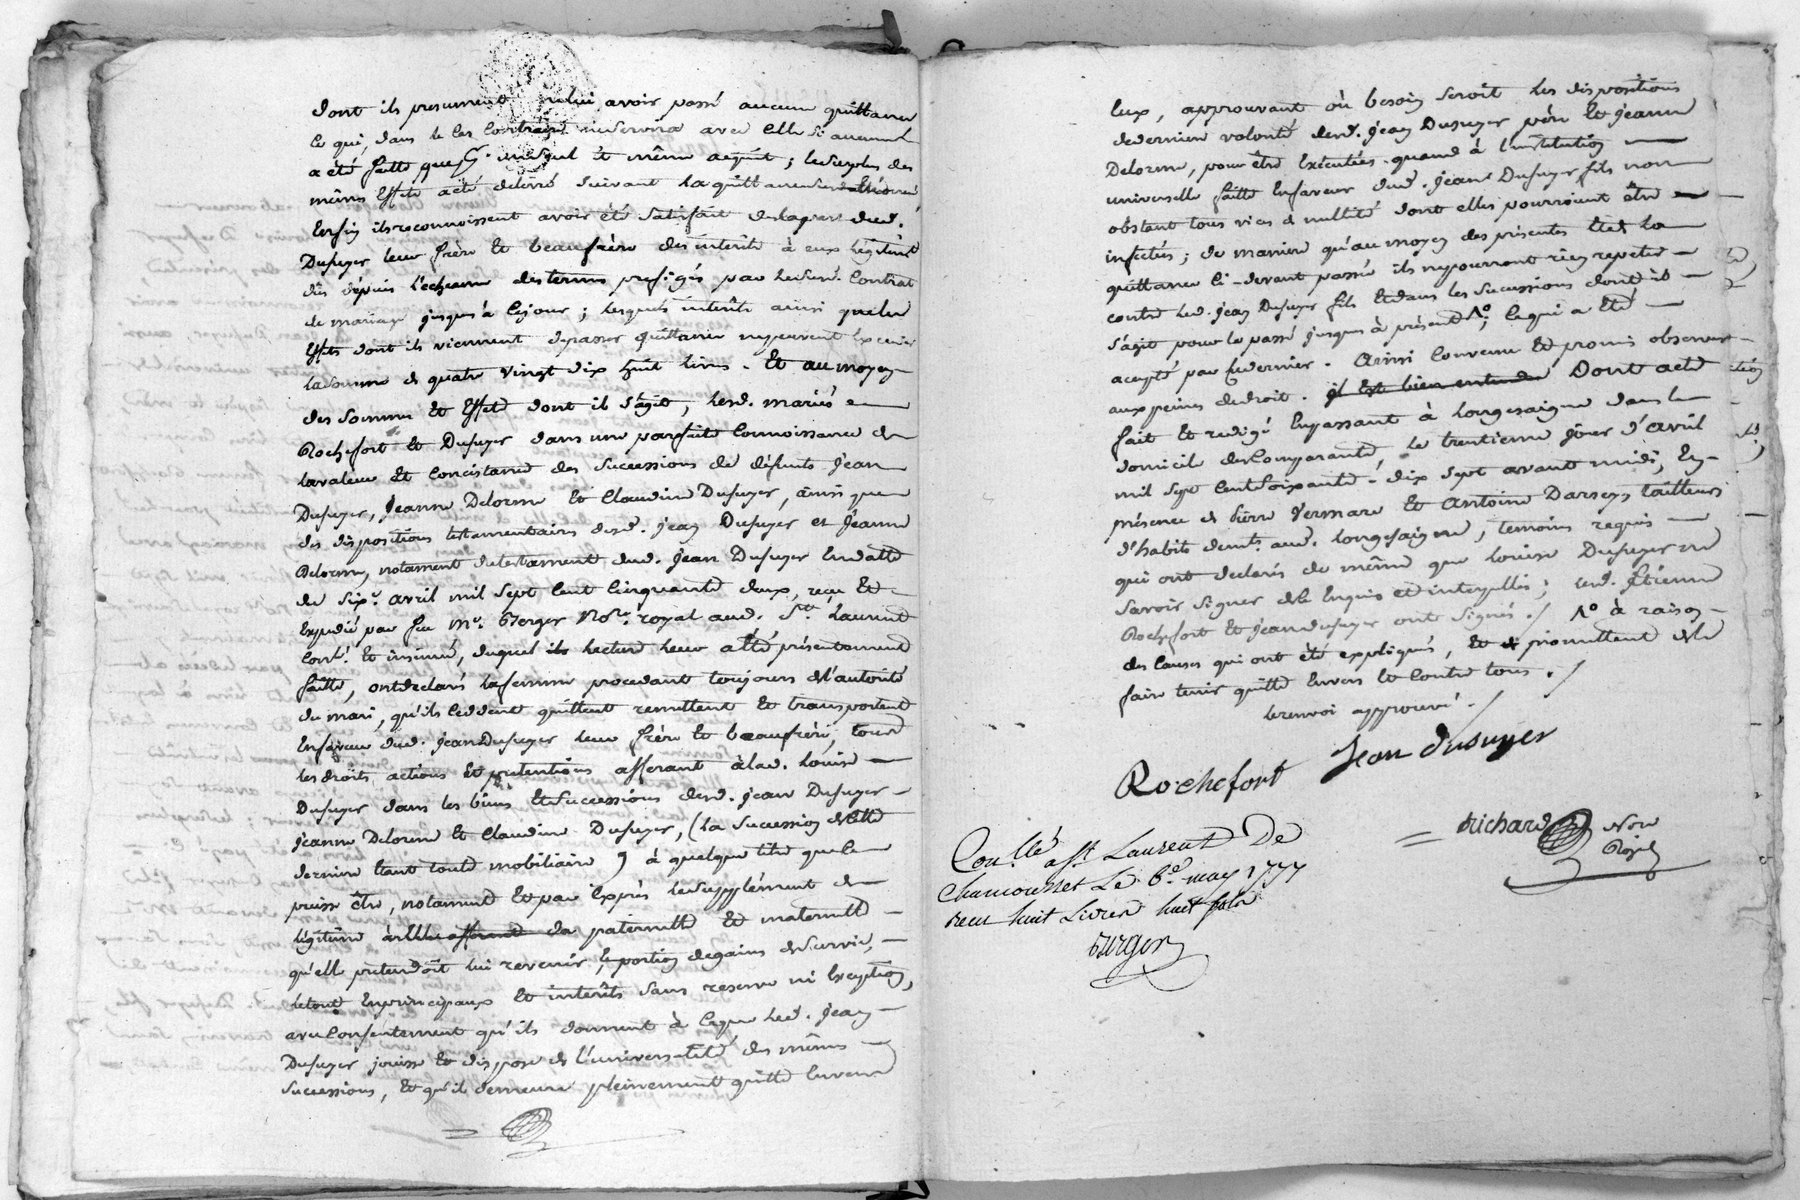 dont ils presument celui avoir passé aucune quittance
ce qui, dans le cas contraire ne servira avec elle si aucune
a été faitte que d'un seul et même acquit ; le surplus des
mêmes effets a été delivré suivant la quittance
Enfin ils reconnoissent avoir été satisfait de la part dud.
Dusuyer leur frère et beaufrère des interêts à eux légitimt
dûs depuis l'echeance des termes prefigés par led. Contrat
de mariage jusques à ce jour ; lesquels interêts ainsi que les
effets dont ils viennent de passer quittance ne peuvent exceder
la somme de quatre vingt dix huit livres . Et au moyen
des sommes et effets dont il s'agit, lesd. mariés
Rochefort et Dusuyer dans une parfaite connoissance de
la valeur et concistance des successions de défunts Jean
Dusuyer, Jeanne Delorme et Claudine Dusuyer, ainsi que
des dispositions testamentaires desd. Jean Dusuyer et Jeanne
Delorme, notament du testament dud. Jean Dusuyer en datte
du six.e avril mil sept cent cinquante deux, reçu et
expedié par feu Me. Berger Nore. royal aud. St. Laurent
Cont.é et insinué, duquel lecture leur a été présentement
faitte, ont declaré la femme procedant toujours de l'autorité
du mari, qu'ils cedent quittent remettent et transportent
en faveur dud. Jean Dusuyer leur frère et beaufrère, tous
les droits, actions et pretentions afferant à lad. Louise
Dusuyer dans les biens et successions desd. Jean Dusuyer
Jeanne Delorme et Claudine Dusuyer, (la succession de cette
derniere étant toute mobiliaire) à quelque titre que ce
puisse être, notament et par exprès le supplément de
légitime paternelle et maternelle
qu'elle pretendoit lui revenir, portion de gains de survie,
le tout en principaux et interêts sans reserve ni exception,
avec consentement qu'ils donnent à ce que led. Jean
Dusuyer jouisse et dispose de l'universalité des mêmes
successions, et qu'il demeure pleinement quitte envers
eux, approuvant où besoin seroit les dispositions
de derniere volonté desd. Jean Dusuyer père et Jeanne
Delorme, pour être executées quand à l'institution
universelle faitte en faveur dud. Jean Dusuyer fils non
obstant tous vices de nullité dont elles pourroient être
infectées ; de maniere qu'au moyen des présentes et de la
quittance ci-devant passée ils ne pourront rien repeter
contre led. Jean Dusuyer fils et dans les successions dont il
s'agit pour le passé jusques à présent No. ; ce qui a été
accepté par ce dernier . Ainsi convenu et promis observer
aux peines de droit . il est bien entendu Dont acte
fait et redigé en passant à Longesaigne dans le
domicile des comparants, le trentieme jour d'avril
mil sept cent soixante-dix sept avant midi, en
présence de Pierre Vermare et Antoine Darsey, tailleurs
d'habits demts. aud. Longesaigne, temoins requis
qui ont declarés de même que Louise Dusuyer ne
savoir signer de ce enquis et interpellés ; led. Étienne
Rochefort et Jean Dusuyer ont signés ./ No à raison
des causes qui ont été expliqués, et promettent de le
faire tenir quitte envers et contre tous ./
le renvoi approuvé ./
Rochefort Jean Dusuyer
Richard Nore
Royal
Con.llé a St Laurent De
Chamousset Le 6e. may 1777
recu huit Livres huit sols
Burger